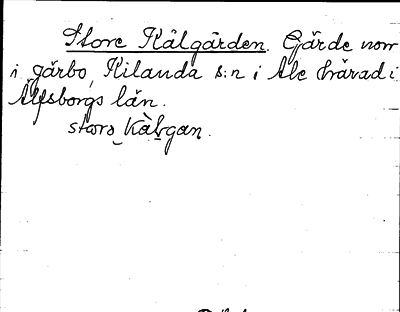 Store Kålgården. Gärde norr
i gårbo, Kilanda s:n i Ale härad i
Älfsborgs län.
storo Kàlgan.